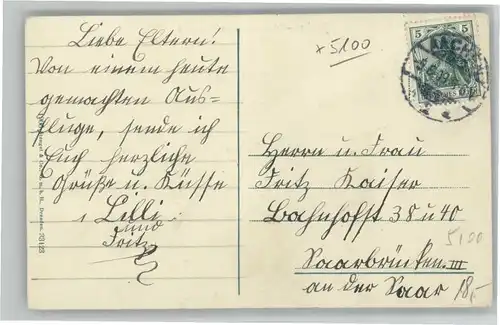 Liebe Eltern!
Von einem heute
gemachten Aus=
fluge, sende ich
Euch herzliche
Grüße u. Küsse
Lilli
und
Fritz
x 5100
5 5
AACHEN
Herrn u. Frau
Fritz Kaiser
Bahnhofst 38 u 40
5100
Saarbrücken III
an der Saar 18,-
Dresden. 73123